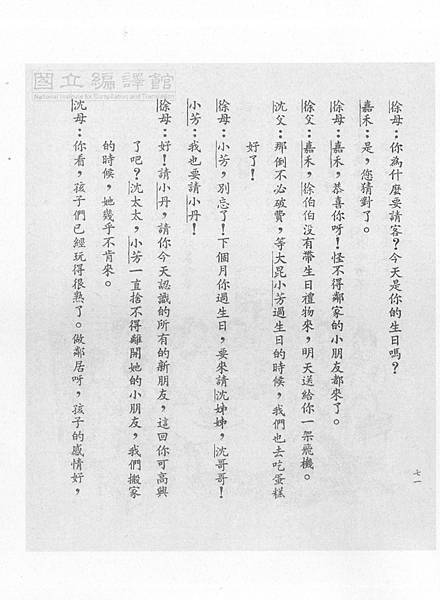 國立編譯館
National Institute for Compilation and Translation
徐母：你為什麼要請客？今天是你的生日嗎？
嘉禾：是，您猜對了。
徐母：嘉禾，恭喜你呀！怪不得鄰家的小朋友都來了。
徐父：嘉禾，徐伯伯沒有帶生日禮物來，明天送給你一架飛機。
沈父：那倒不必破費，等大昆小芳過生日的時候，我們也去吃蛋糕
好了！
徐母：小芳，別忘了！下個月你過生日，要來請沈姊姊，沈哥哥！
小芳：我也要請小丹！
徐母：好！請小丹，請你今天認識的所有的新朋友，這回你可高興
了吧？沈太太，小芳一直捨不得離開她的小朋友，我們搬家
的時候，她幾乎不肯來。
沈母：你看，孩子們已經玩得很熟了。做鄰居呀，孩子的感情好，
七一